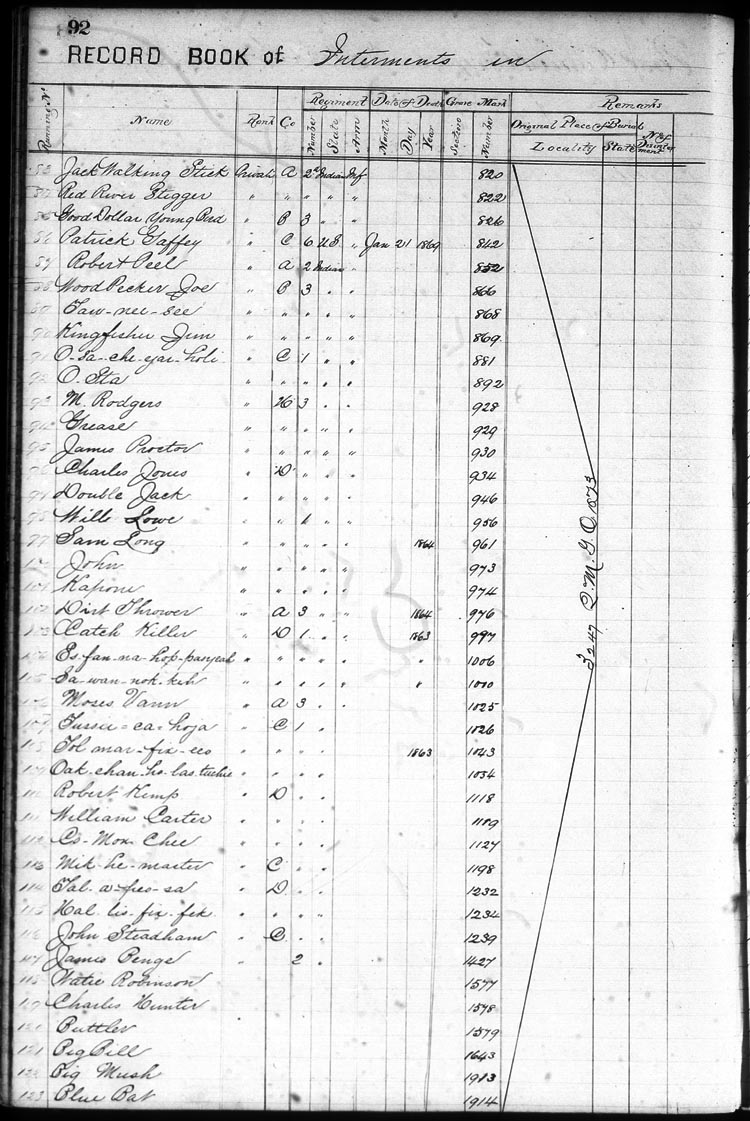 92
RECORD BOOK of Interments in
Running No. Name Rank Co Regiment Date of Death Grave Mark Remarks
Number State Arm Month Day Year Section Number Original Place of Burial No. of Disinterment
Locality State
Jack Walking Stick Private A 2d Indian Inf 820
Red River Stigger " " " " " 822
Good Dollar Young Bird " B 3 " " 826
Patrick Gaffey " C 6 U.S. " Jan 21 1869 842
Robert Peel " A 2 Indian " 852
Wood Pecker Joe " B 3 " " 866
Taw-nee-see " " " " " 868
Kingfisher Jim " " " " " 869
91 O-sa-che-yar-holi " C 1 " " 881
92 O. Sta " " " " " 892
93 M. Rodgers " H 3 " " 928
94 Grease " " " " " 929
95 James Proctor " " " " " 930
Charles Jones " D " " " 934
Double Jack " " " " " 946
98 Wills Lowe " " " " 956
Sam Long " " " " " 1864 961
John " " " " " 973
101 Kapone " " " " " 974
102 Dirt Thrower " A 3 " " 1864 976
103 Catch Killer " D 1 " " 1863 997
104 Es-fan-na-hop-panyeah " " " " " " 1006
105 Sa-wan-nok-keh " " " " " "
106 Moses Vann " A 3 " " 1025
107 Tussie-ca-hoja " C 1 " 1026
108 Tol-mar-fix-ees " " " " 1863 1043
109 Oak-chan-ho-las-tuchie " " " " 1034
110 Robert Kemp " D " " 1118
111 William Carter " " " " 1119
112 Co-Mox-Chee " " " " 1127
113 Mik-he-master " C " " 1198
114 Tal-a-fes-sa " D " " 1232
115 Hal-lis-fix-fek " " " " 1234
116 John Steadham " C " " 1239
117 James Benge " 2 " 1427
118 Watie Robinson 1577
119 Charles Hunter 1578
120 Buttler 1579
121 Pig Bill 1643
122 Pig Mush 1913
123 Blue Bat 1914
3247 Q. M. G. O. 1873